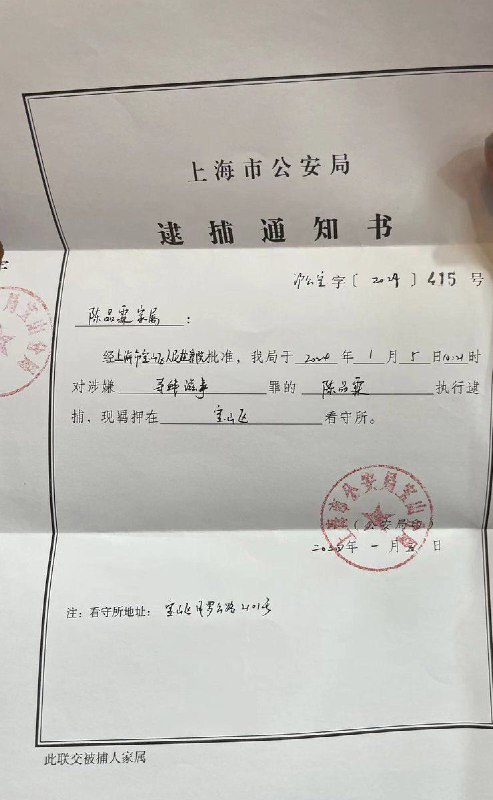 上海市公安局
逮捕通知书
沪公宝字〔2024〕415号
陈品霖家属：
经上海市宝山区人民检察院批准，我局于2024年1月5日10:21时
对涉嫌寻衅滋事罪的陈品霖执行逮
捕，现羁押在宝山区看守所。
（公安局印）
2024年一月五日
注：看守所地址：宝山区月罗公路2101号
此联交被捕人家属